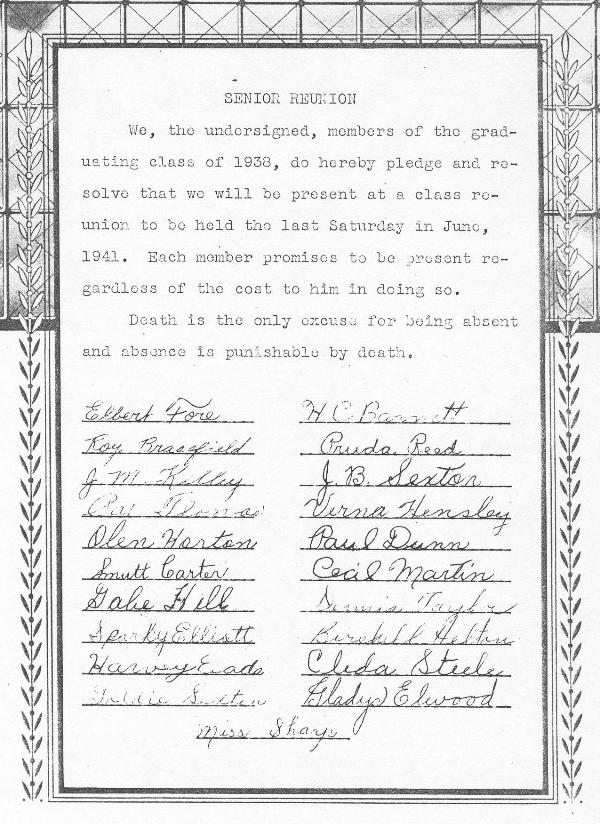 SENIOR REUNION
We, the undersigned, members of the grad-
uating class of 1938, do hereby pledge and re-
solve that we will be present at a class re-
union to be held the last Saturday in June,
1941. Each member promises to be present re-
gardless of the cost to him in doing so.
Death is the only excuse for being absent
and absence is punishable by death.
Elbert Fore
H C Barnett
Roy Bragfield
Pruda Reed
J. M. Kelley
J. B. Sexton
Thomas
Verna Hensley
Olen Horton
Paul Dunn
Smutt Carter
Cecil Martin
Gabe Hill
Dennis Taylor
Sparky Elliott
Helton
Harvey Eads
Cleda Steele
Goldie Sexton
Gladys Elwood
Miss Sharp